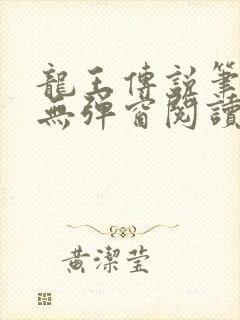 龍王傳說筆
無彈窗閱讀
黃潔瑩